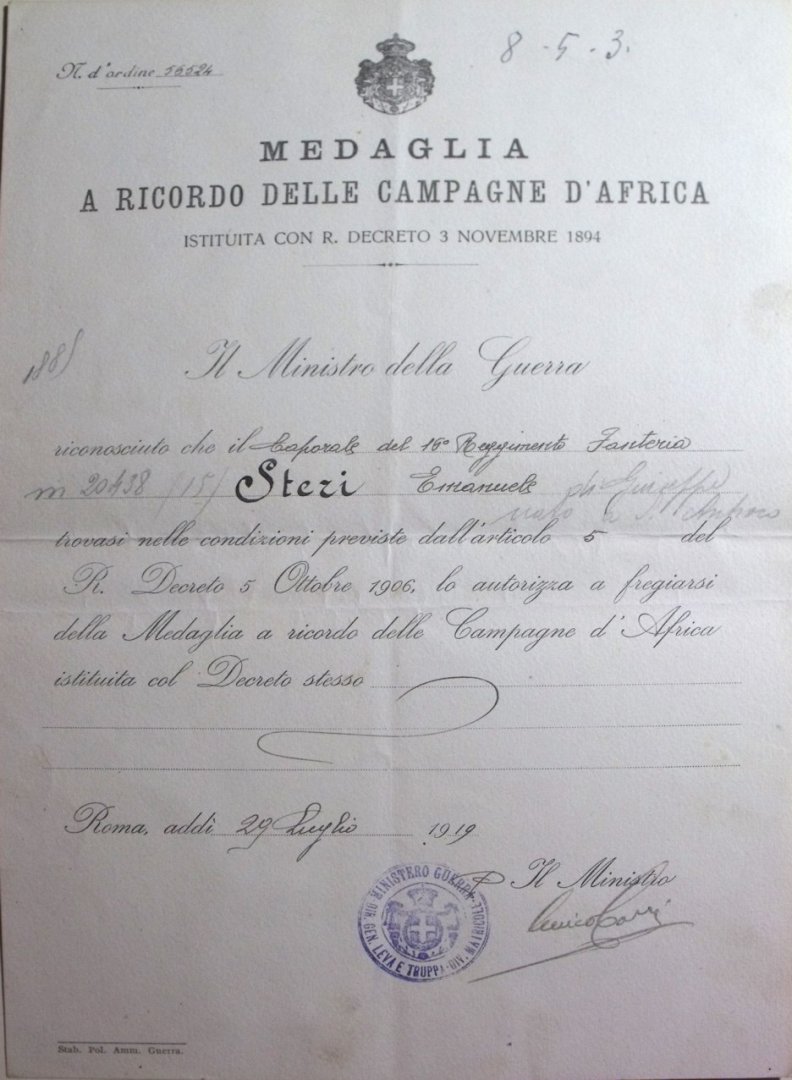 N. d'ordine 56524
8-5-3.
MEDAGLIA
A RICORDO DELLE CAMPAGNE D'AFRICA
ISTITUITA CON R. DECRETO 3 NOVEMBRE 1894
Il Ministro della Guerra
riconosciuto che il Caporale del 16° Reggimento Fanteria
m 20438 (15) Steri Emanuele di Giuseppe
nato a S.
trovasi nelle condizioni previste dall'articolo 5 del
R. Decreto 5 Ottobre 1906, lo autorizza a fregiarsi
della Medaglia a ricordo delle Campagne d'Africa
istituita col Decreto stesso
Roma, addì 29 Luglio 1919
Il Ministro
MINISTERO GUERRA
DIR. GEN. LEVA E TRUPPA - DIV. MATRICOLE
Stab. Pol. Amm. Guerra.